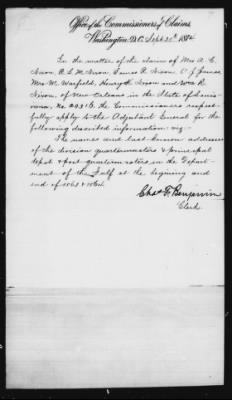 Office of the Commissioners of Claims,
Washington, D.C. Sept 20th 1874
In the matter of the claim of Mrs A. C.
Nixon, James R. Nixon,
Mrs. M. Warfield, Henry Nixon and Wm R.
Nixon, of New Orleans in the State of Louisi-
ana, No. the Commissioners respect-
fully apply to the Adjutant General for the
following described information viz:
The names and last known addresses
of the division quartermasters & principal
depot & post quartermasters in the Depart-
ment of the Gulf at the beginning and
end of 1863 & 1864.
Chas F. Benjamin
Clerk